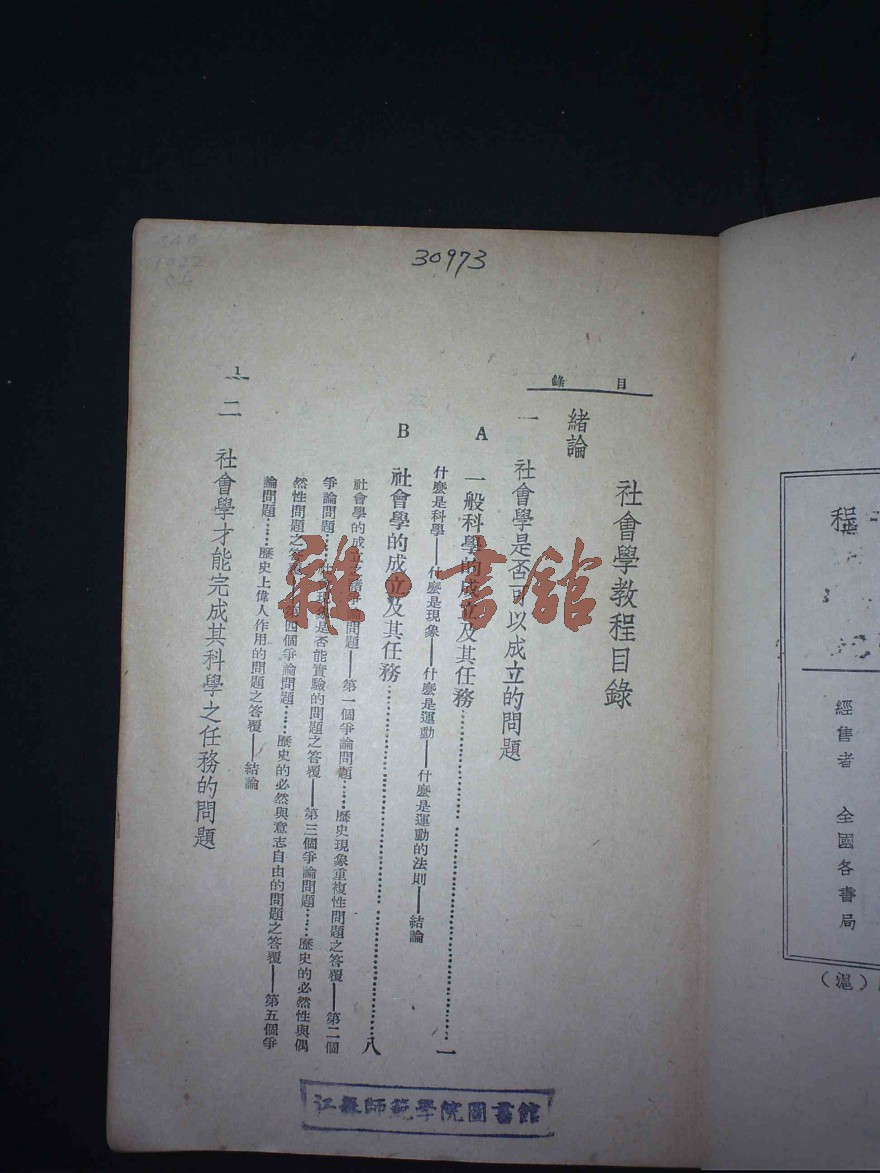 30973
目錄
社會學教程目錄
緒論
一 社會學是否可以成立的問題
A 一般科學的成立及其任務……一
什麼是科學——什麼是現象——什麼是運動——什麼是運動的法則——結論
B 社會學的成立及其任務……八
社會學的成立之諸爭論問題——第一個爭論問題……歷史現象重複性問題之答覆——第二個
爭論問題……社會現象是否能實驗的問題之答覆——第三個爭論問題……歷史的必然性與偶
然性問題之答覆——第四個爭論問題……歷史的必然與意志自由的問題之答覆——第五個爭
論問題……歷史上偉人作用的問題之答覆——結論
二 社會學才能完成其科學之任務的問題
1
雜·書館
江蘇師範學院圖書館
程
經售者 全國各書局
(滬)